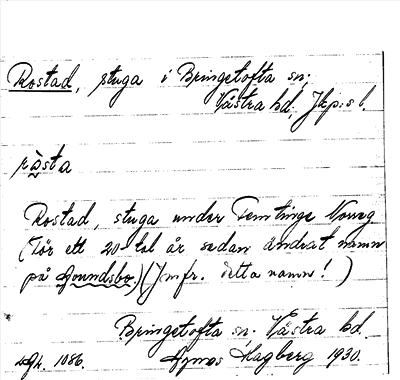 Rostad, stuga i Bringetofta sn;
Västra hd, Jkp:s l.
rosta
Rostad, stuga under Femtinge Norrg
(för ett 20-tal år sedan ändrat namn
på Grundsbo.) (Jmfr. detta namn! )
Bringetofta sn. Västra hd.
Agh. 1086. Agnes Hagberg 1930.